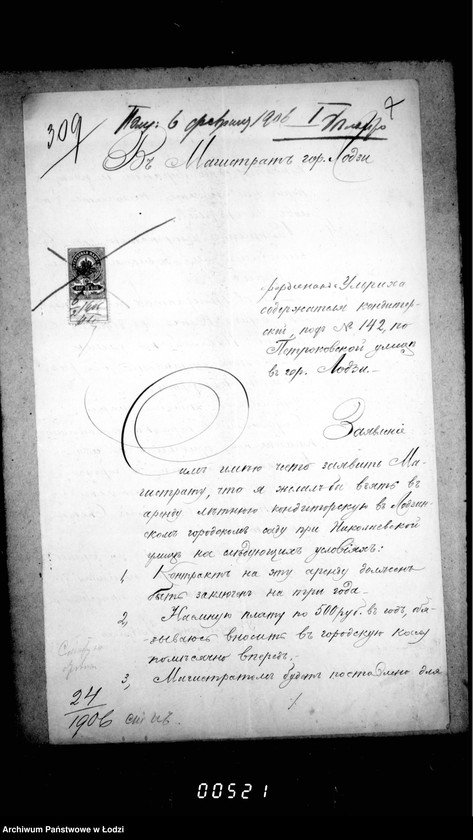 309
Пол: 6 февраля 1906 I
7
Въ Магистратъ гор. Лодзи
Фердинанда Ульриха
содержателя кондитер-
ской, подъ № 142, по
Петроковской улицѣ
въ гор. Лодзи.
Заявленіе
Симъ имѣю честь заявить Ма-
гистрату, что я желалъ бы взять въ
аренду лѣтнюю кондиторскую въ Лодзин-
скомъ городскомъ саду при Николаевской
улицѣ на слѣдующихъ условіяхъ:
1, Контрактъ на эту аренду долженъ
быть заключенъ на три года.
2, Наемную плату по 500 руб. въ годъ, обя-
зываюсь вносить въ городскую кассу
помѣсячно впередъ.
3, Магистратомъ будетъ поставлено для
24
1906
00521
Archiwum Państwowe w Łodzi